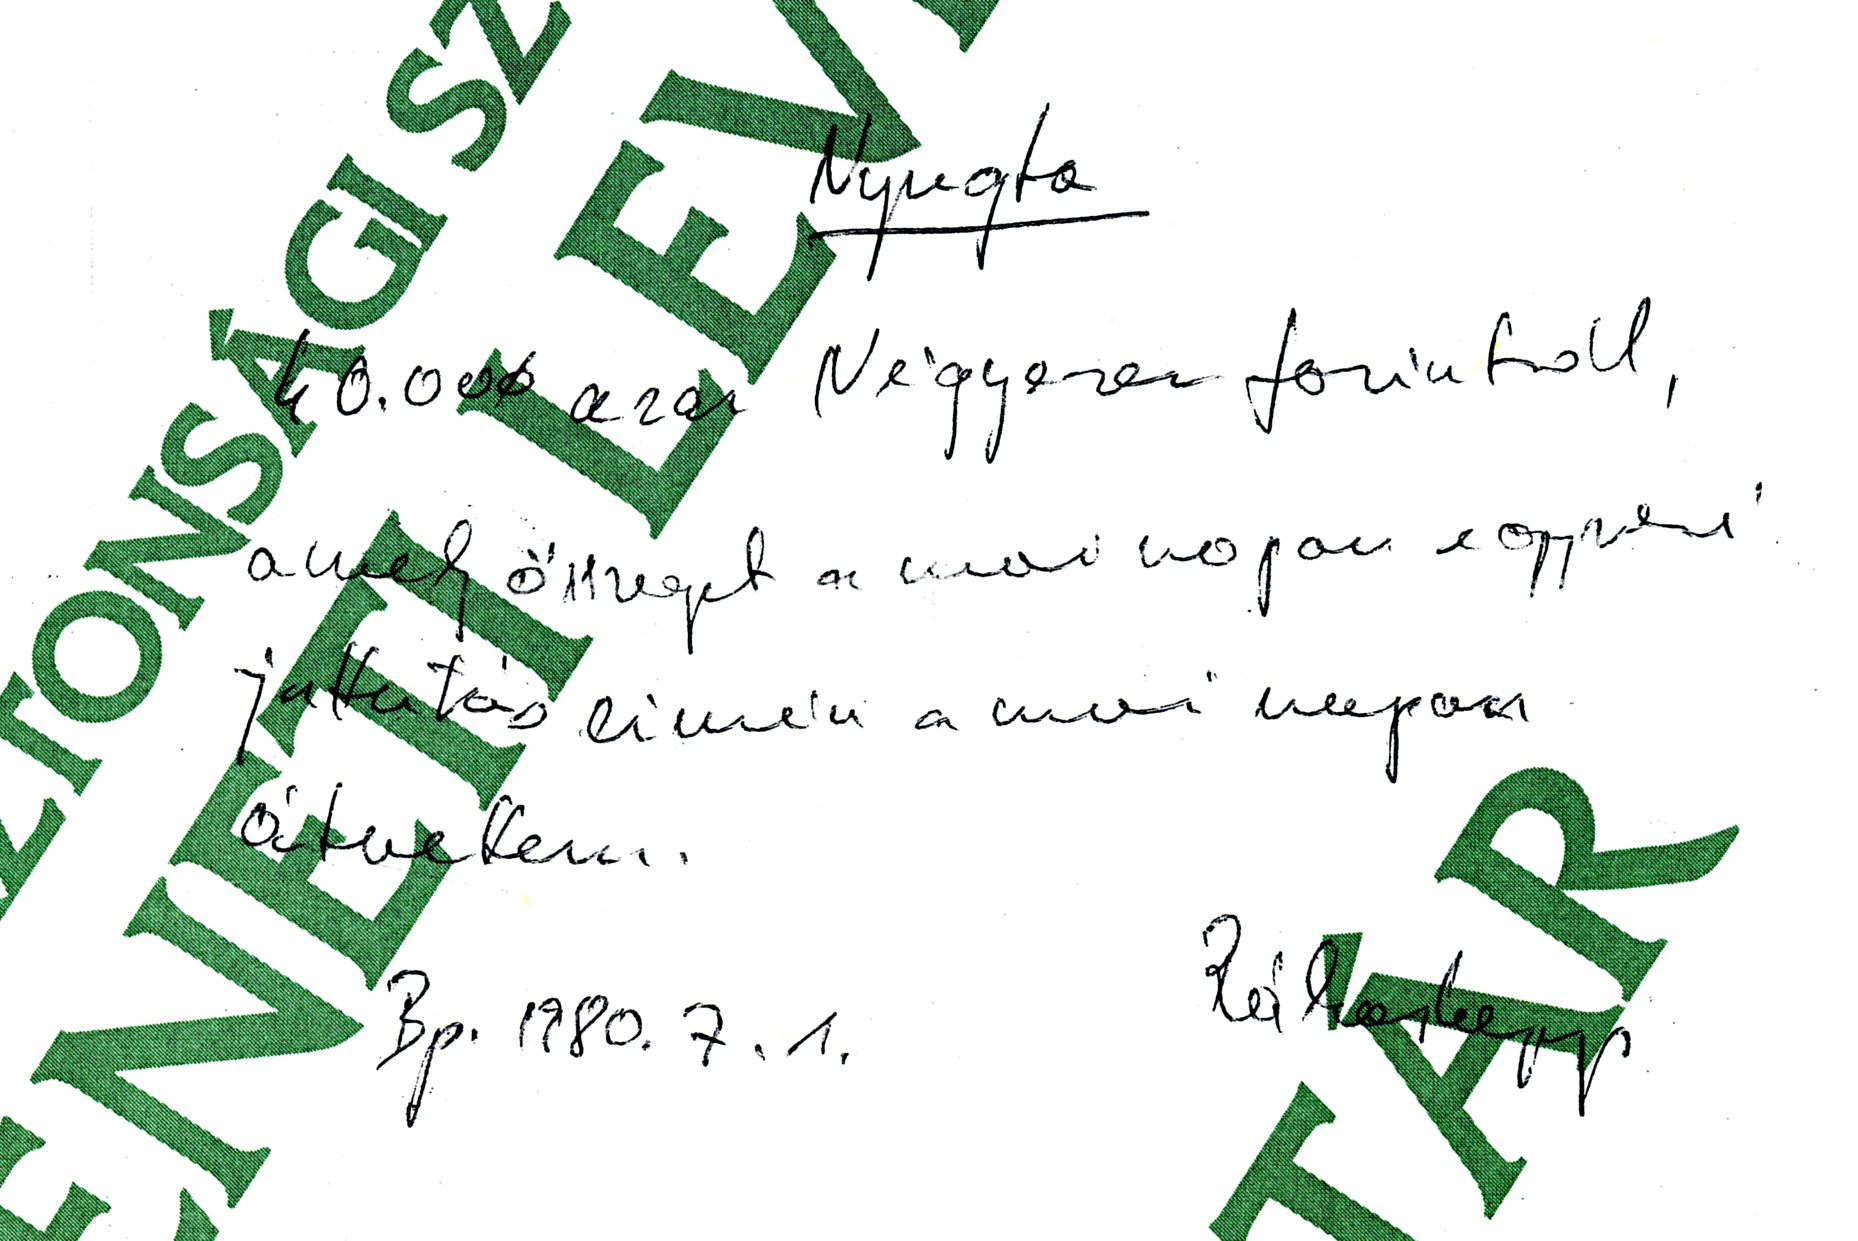 Nyugta
40.000 azaz Négyezer forintról,
amely összeget a mai napon egyszeri
juttatás cimén a mai napon
átvettem.
Bp. 1980. 7. 1.
ZTONSÁGI SZ
ENETI LEV
TÁR